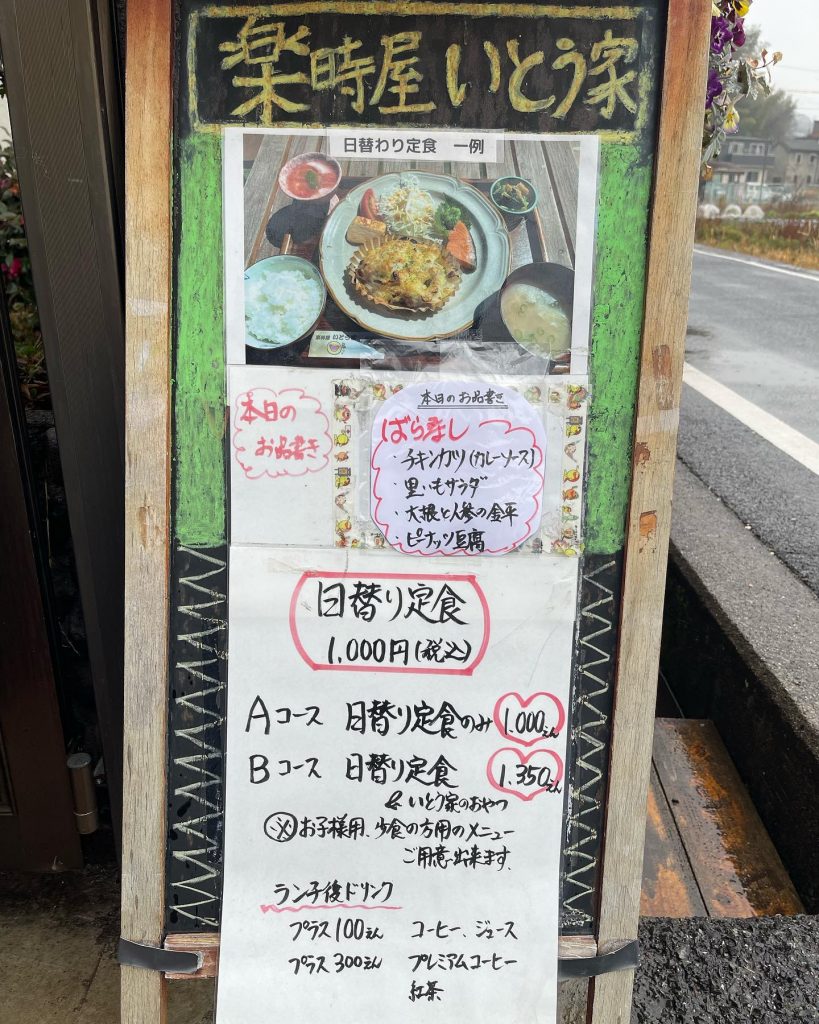 楽時屋 いとう家
日替わり定食　一例
楽時屋 いとう家
本日の
お品書き
本日のお品書き
ばら寿し
・チキンカツ(カレーソース)
・里いもサラダ
・大根と人参の金平
・ピーナッツ豆腐
日替り定食
1,000円(税込)
Aコース 日替り定食のみ 1.000えん
Bコース 日替り定食 1.350えん
& いとう家のおやつ
※お子様用、少食の方用のメニュー
ご用意出来ます.
ランチ後ドリンク
プラス100えん コーヒー、ジュース
プラス300えん プレミアムコーヒー
紅茶